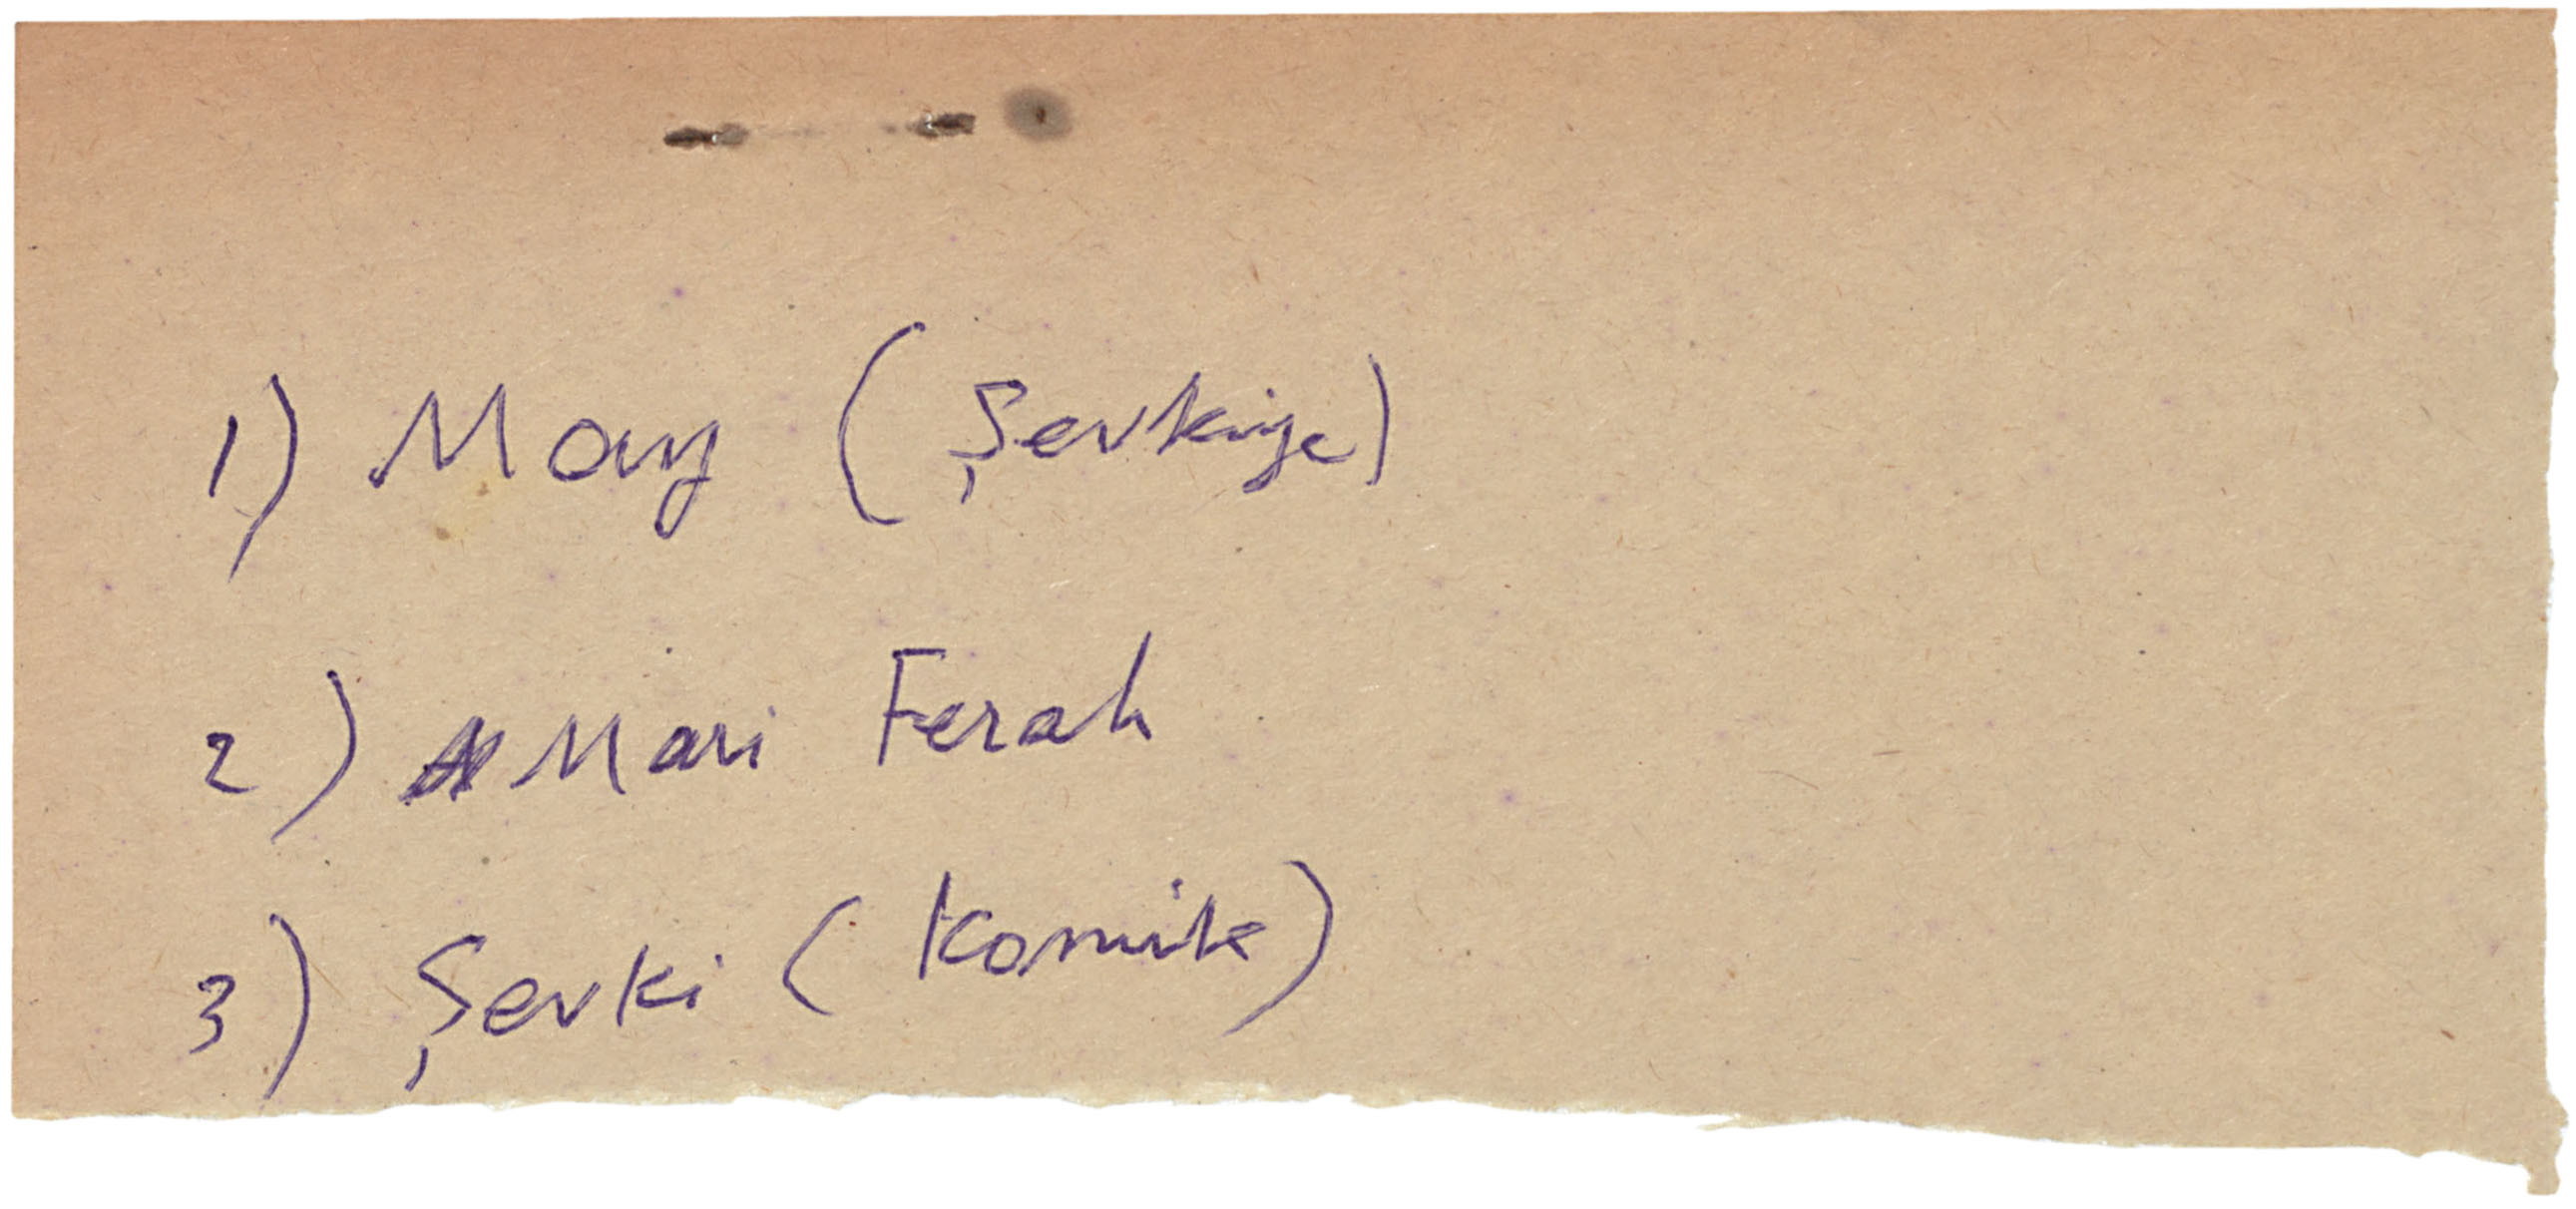 1) Mary (Şevkiye)
2) Mari Ferah
3) Şevki (Komik)